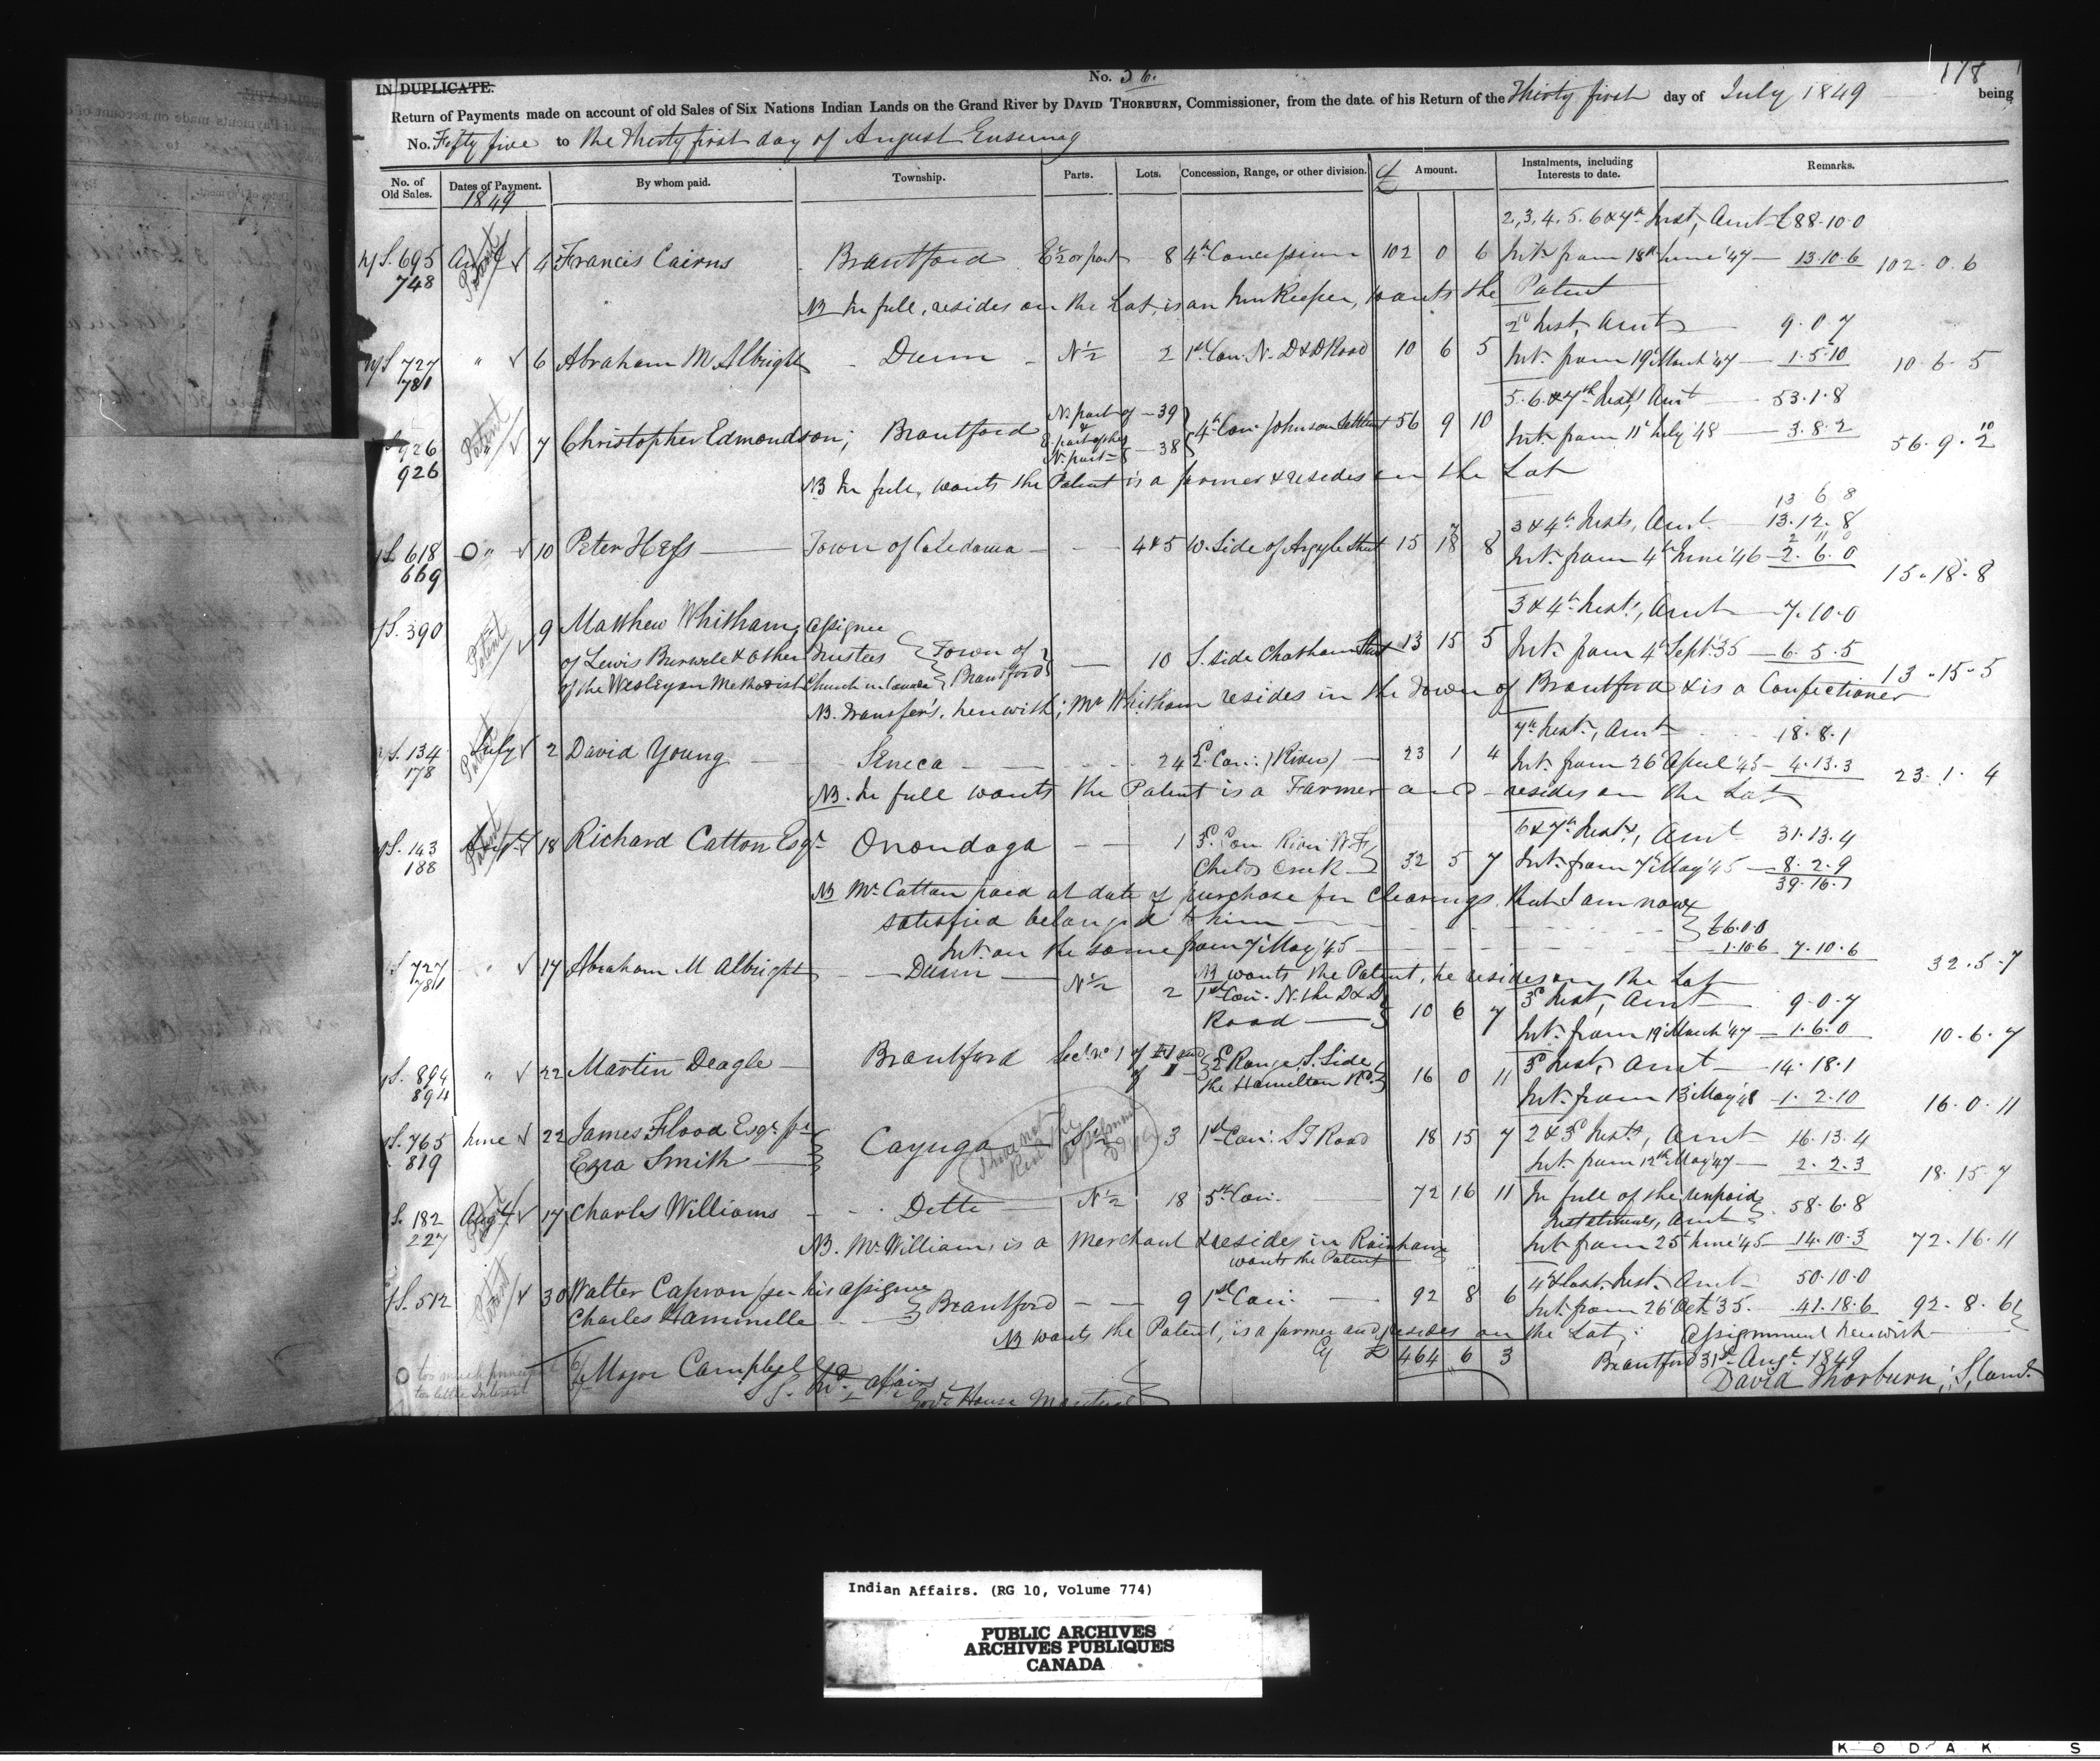 178
No. 56.
IN DUPLICATE.
Return of Payments made on account of old Sales of Six Nations Indian Lands on the Grand River by DAVID THORBURN, Commissioner, from the date of his Return of the Thirty first day of July 1849 being
No. Fifty five to the Thirty first day of August Ensuing
No. of Old Sales. Dates of Payment. By whom paid. Township. Parts. Lots. Concession, Range, or other division. Amount. Instalments, including Interests to date. Remarks.
1849
2, 3, 4, 5. 6 & 7th Inst, Amt £88.10.0
S. 695 Augt 4 Francis Cairns Brantford E½ or part 8 4th Concession 102 0 6 Int. from 18th June '47 13.10.6 102.0.6
748 Patent
NB In full, resides on the Lot, is an Inn Keeper, wants the Patent
2d Inst, Amt 9.0.7
S 727 " 6 Abraham M Albright Dunn N½ 2 1st Con. N. D&D Road 10 6 5 Int. from 19 March '47 1.5.10 10.6.5
781
5. 6 & 7th Inst, Amt 53.1.8
S 926 Patent 7 Christopher Edmondson, Brantford N. part of 39 & E. part of the N. part of 38 4th Con. Johnson Settlemt 56 9 10 Int. from 11 July '48 3.8.2 56.9.10
926
NB In full, wants the Patent is a farmer & resides on the Lot
13 6 8
3 & 4th Insts, Amt 13.12.8
S. 618 O " 10 Peter Hess Town of Caledonia 4&5 W. Side of Argyle Street 15 18 8 Int. from 4th June '46 2.6.0 15.18.8
669
3 & 4th Inst., Amt 7.10.0
S. 390 Patent 9 Matthew Whitham, assignee
of Lewis Burwele & other Trustees Town of Brantford 10 S. side Chatham Street 13 15 5 Int. from 4 Sept. 35 6.5.5
of the Wesleyan Methodist Church in Canada 13.15.5
NB. Transfer's. herewith; Mr Whitham resides in the Town of Brantford & is a Confectioner
7th Inst., Amt 18.8.1
S. 134 July 2 David Young Seneca 24 E. Con: (River) 23 1 4 Int. from 26 April '45 4.13.3 23.1.4
178 Patent
NB. In full wants the Patent is a Farmer and resides on the Lot
6 & 7th Insts, Amt 31.13.4
S. 143 Augt 18 Richard Catton Esqr. Onondaga 1 3d Con River W. Fs
188 Patent Childs Creek 32 5 7 Int. from 7 May '45 8.2.9
39.16.1
NB Mr Catton paid at date of purchase for Clearings that I am now
satisfied belonged to him £6.0.0
Int. on the same from 7 May '45 1.10.6 7.10.6
32.5.7
NB wants the Patent, he resides on the Lot
S 727 " 17 Abraham M Albright Dunn N½ 2 1st Con. N. the D&D Road 10 6 7 3d Inst, Amt 9.0.7
781 Int. from 19 March '47 1.6.0 10.6.7
S. 894 " 22 Martin Deagle Brantford 2d Range S. Side the Hamilton Rd. 16 0 11 3d Inst, Amt 14.18.1
894 Int. from 13 May '48 1.2.10 16.0.11
S. 765 June 22 James Flood Esqr. for Ezra Smith Cayuga S½ 3 1st Con: ST Road 18 15 7 2 & 3d Insts, Amt 16.13.4
819 Int. from 12th May '47 2.2.3 18.15.7
S. 182 Augt 17 Charles Williams Ditto N½ 18 5th Con. 72 16 11 In full of the unpaid Instalments, Amt 58.6.8
227 Int. from 25 June '45 14.10.3 72.16.11
NB. Mr Williams is a Merchant & resides in Rainham
wants the Patent
S. 512 Patent 30 Walter Capron per his assignee Charles Hammelle Brantford 9 1st Con. 92 8 6 4 & last Inst. Amt 50.10.0
Int. from 26 Oct. 35. 41.18.6 92.8.6
NB wants the Patent, is a farmer and resides on the Lot; Assignment herewith
Cy £ 464 6 3
Brantford 31st Augt. 1849
David Thorburn,
O too much principal
too little Interest
Major Campbell
S. G. Ind. affairs
Govt House Montreal
Indian Affairs. (RG 10, Volume 774)
PUBLIC ARCHIVES
ARCHIVES PUBLIQUES
CANADA
KODAK S